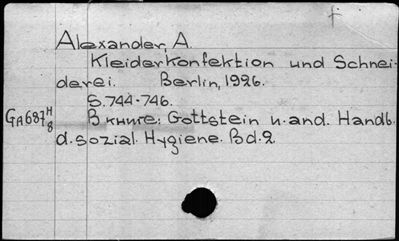 Alexander, A.
Kleiderkonfektion und Schnei-
derei. Berlin, 1926.
S. 744-746.
GA687 H/8 В книге: Gottstein u. and. Handb.
d. sozial. Hygiene. Bd. 2.